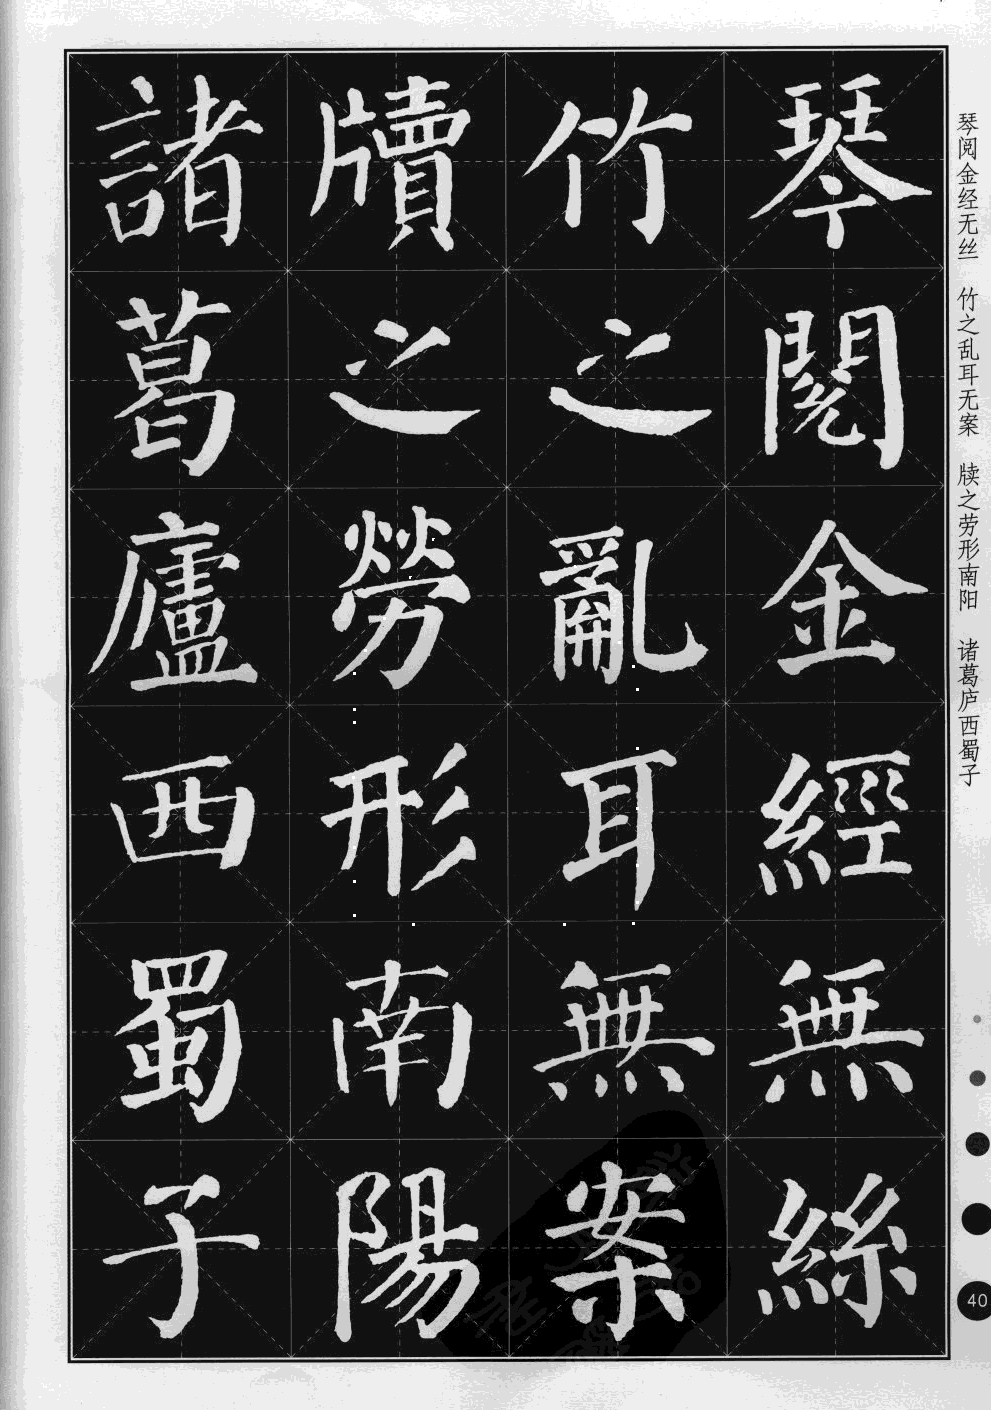 琴閱金經無絲
竹之亂耳無案
牘之勞形南陽
諸葛廬西蜀子
琴阅金经无丝 竹之乱耳无案 牍之劳形南阳 诸葛庐西蜀子
40